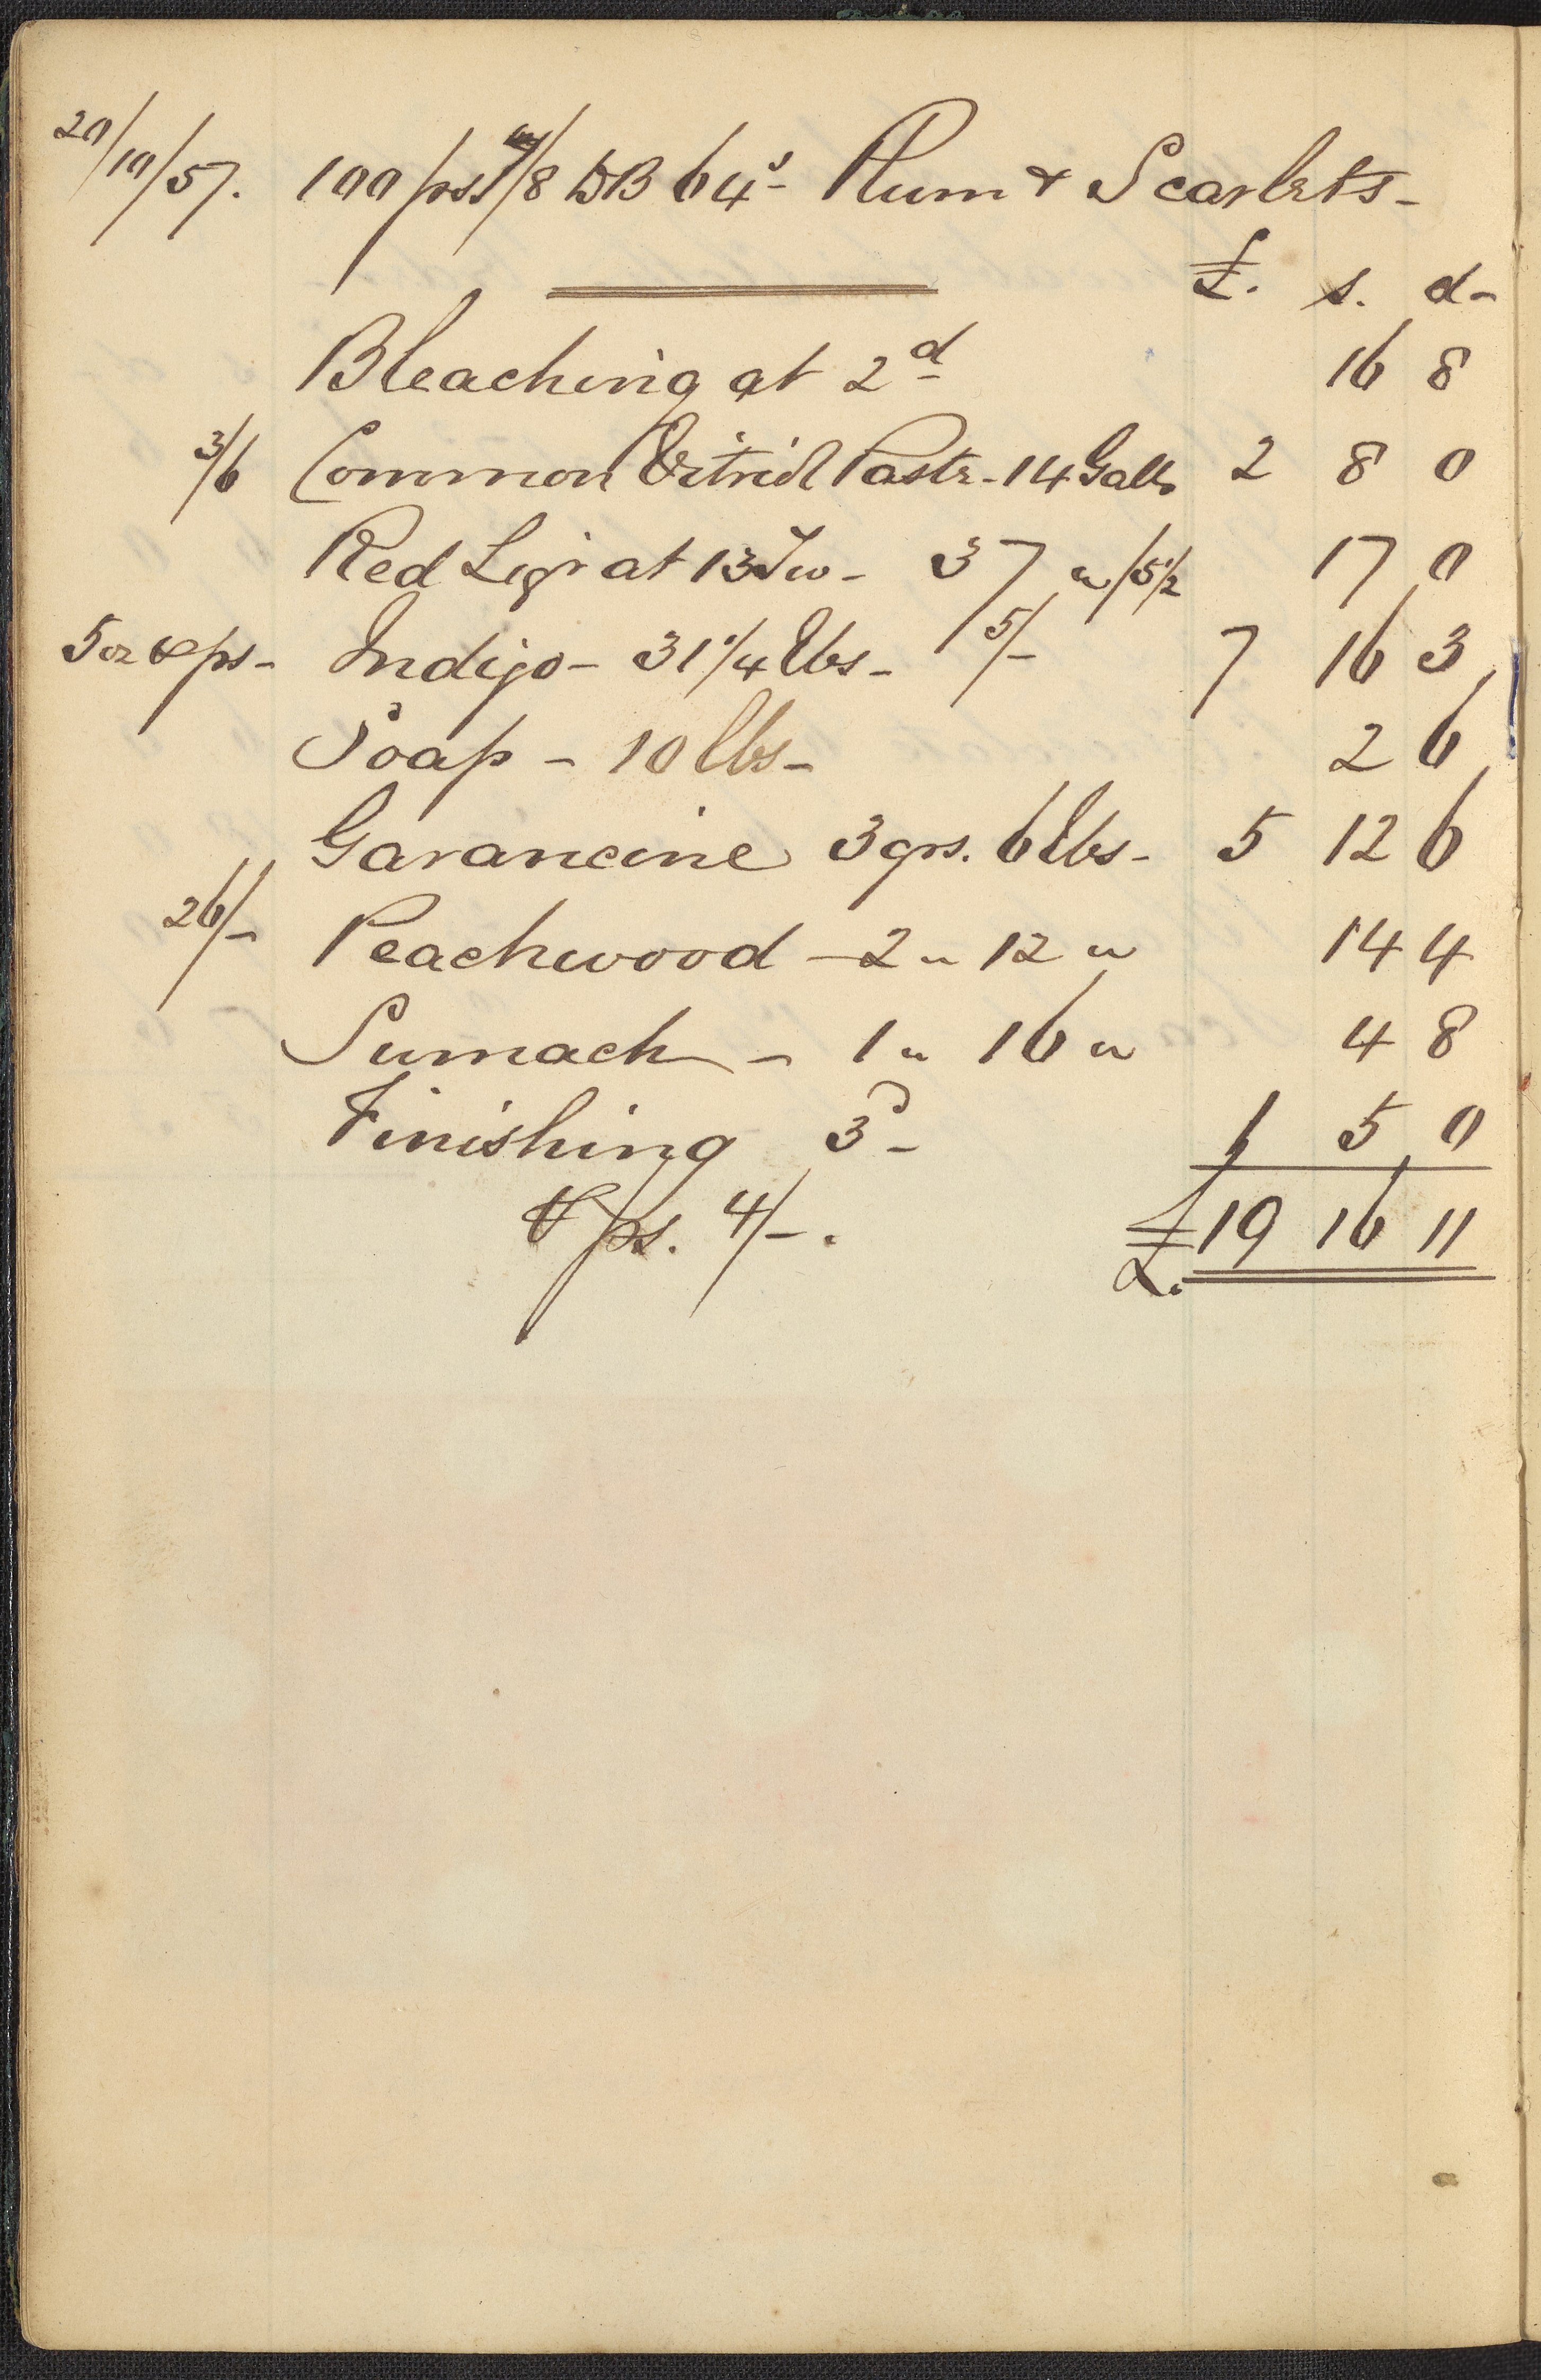 20/10/57. 100 ps. 7/8 BB 64s Plum & Scarlets -
£. s. d -
Bleaching at 2d 16 8
3/6 Common Vitriol Paste - 14 Galls 2 8 0
Red Liqr at 13 Tw - 37 " /5½ 17 0
5 oz ⅌ ps - Indigo - 31 1/4 lbs - 5/- 7 16 3
Soap - 10 lbs - 2 6
Garancine 3 qrs. 6 lbs - 5 12 6
26/- Peachwood - 2 " 12 " 14 4
Sumach - 1 " 16 " 4 8
Finishing 3d - 1 5 0
⅌ ps. 4/-. £19 16 11